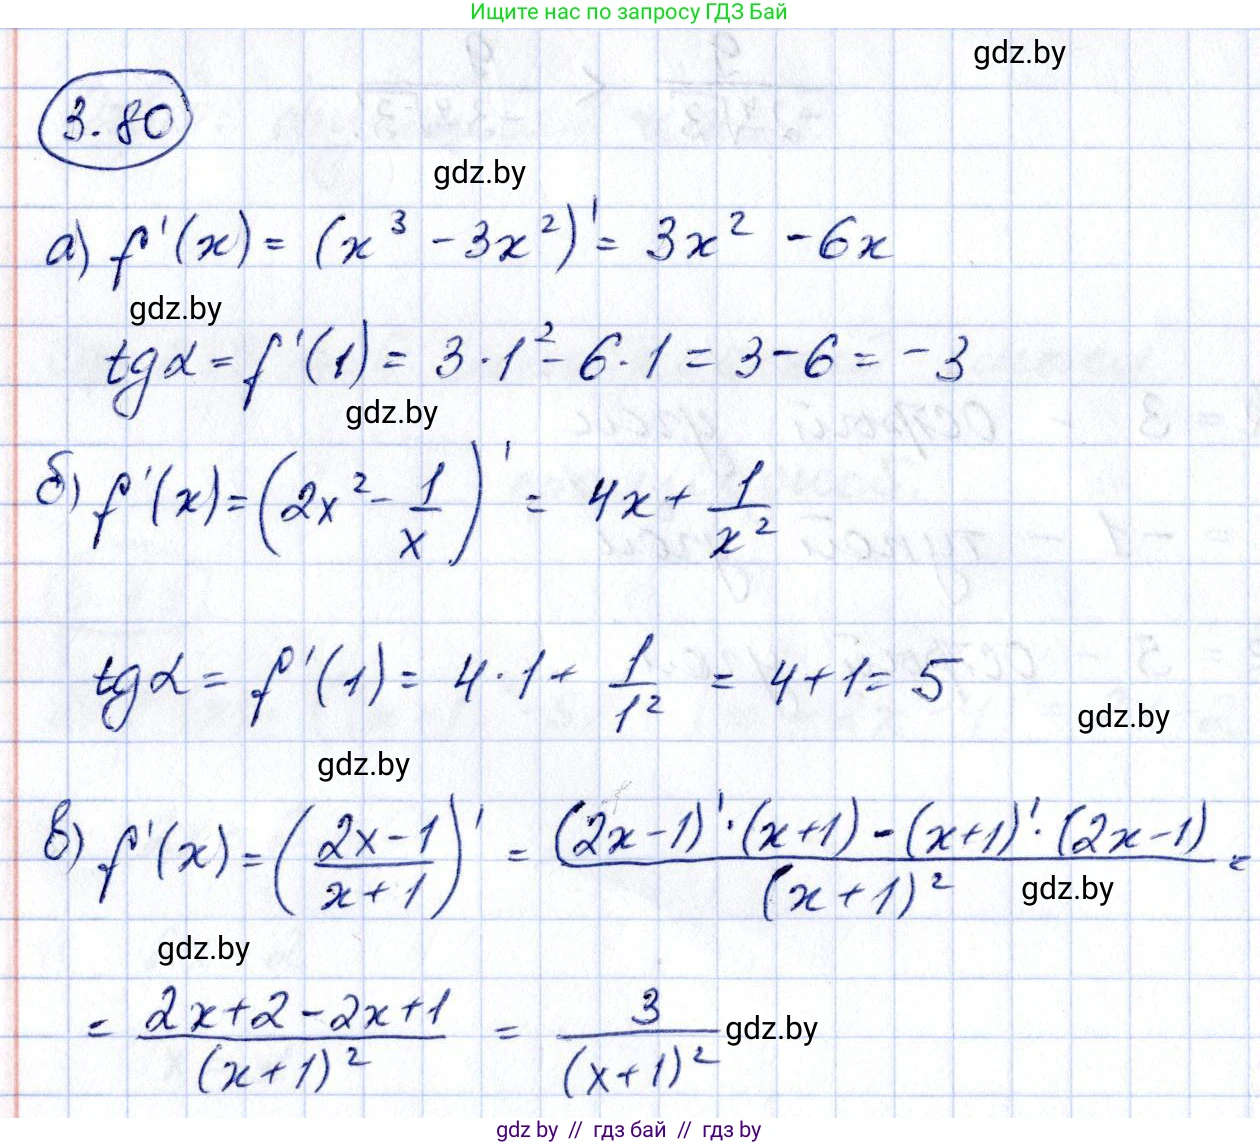 Ищите нас по запросу ГДЗ Бай
gdz.by
3.80
gdz.by
а) f'(x) = (x³ - 3x²)' = 3x² - 6x
gdz.by
tgα = f'(1) = 3·1² - 6·1 = 3 - 6 = -3
gdz.by
б) f'(x) = (2x² - 1/x)' = 4x + 1/x²
tgα = f'(1) = 4·1 + 1/1² = 4 + 1 = 5
gdz.by
gdz.by
в) f'(x) = ((2x-1)/(x+1))' = ((2x-1)'·(x+1) - (x+1)'·(2x-1))/(x+1)² =
gdz.by
gdz.by
= (2x+2-2x+1)/(x+1)² = 3/(x+1)²
gdz.by
gdz by // гдз бай // гдз by